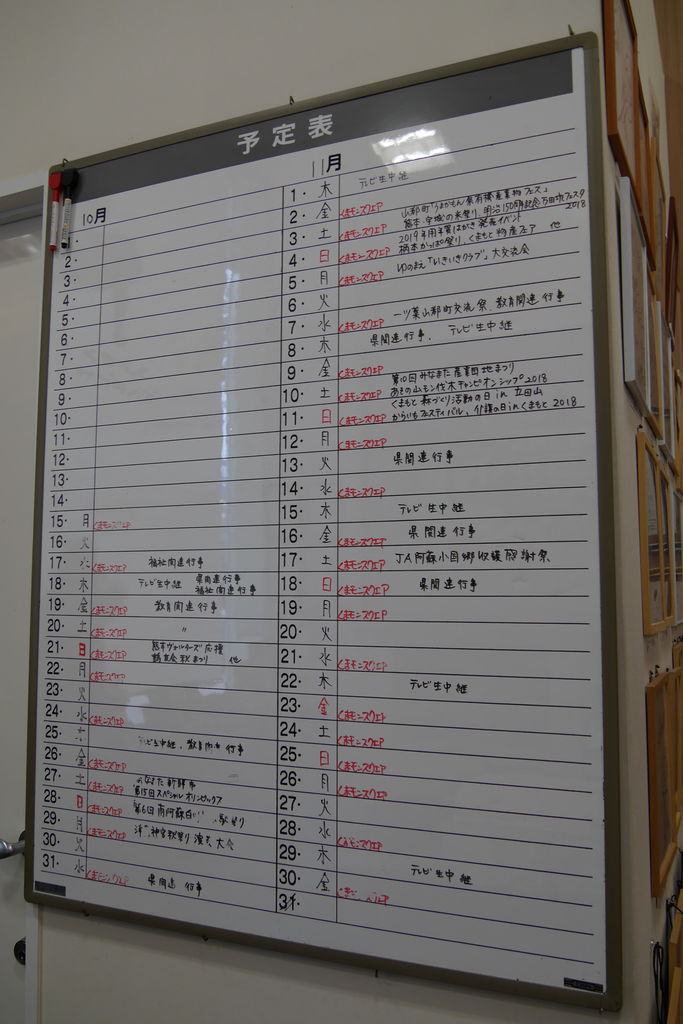 予定表
10月
1.
2.
3.
4.
5.
6.
7.
8.
9.
10.
11.
12.
13.
14.
15. 月 くまモンスクエア
16. 火
17. 水 くまモンスクエア 福祉関連行事
18. 木 テレビ生中継 県関連行事
福祉関連行事
19. 金 くまモンスクエア 教育関連行事
20. 土 くまモンスクエア 〃
21. 日 くまモンスクエア 熊本ヴォルターズ応援
秋まつり 他
22. 月 くまモンスクエア
23. 火
24. 水 くまモンスクエア
25. 木 テレビ生中継、教育関連行事
26. 金 くまモンスクエア
27. 土 くまモンスクエア みなまた
第15回スペシャルオリンピックス
28. 日 くまモンスクエア 第6回南阿蘇 祭り
29. 月 くまモンスクエア 神宮秋祭り演芸大会
30. 火
31. 水 くまモンスクエア 県関連行事
11月
1. 木 テレビ生中継
2. 金 くまモンスクエア 山都町「うまかもん祭有機産業物フェス」
3. 土 くまモンスクエア 熊本・宇城の米祭り、明治150周年記念万田坑フェスタ2018
4. 日 くまモンスクエア 2019年用年賀はがき発売イベント
栖本かっぱ祭り、くまもと物産フェア 他
5. 月 くまモンスクエア ゆのまえ「いきいきクラブ」大交流会
6. 火
7. 水 くまモンスクエア 一ツ葉山都町交流祭、教育関連行事
8. 木 県関連行事、テレビ生中継
9. 金 くまモンスクエア
10. 土 くまモンスクエア 第10回みなまた産業団地まつり
あその山モン伐木チャンピオンシップ2018
11. 日 くまモンスクエア くまもと森づくり活動の日 in 立田山
からいもフェスティバル、介護の日 in くまもと2018
12. 月 くまモンスクエア
13. 火 県関連行事
14. 水 くまモンスクエア
15. 木 テレビ生中継
16. 金 くまモンスクエア 県関連行事
17. 土 くまモンスクエア JA阿蘇小国郷収穫感謝祭
18. 日 くまモンスクエア 県関連行事
19. 月 くまモンスクエア
20. 火
21. 水 くまモンスクエア
22. 木 テレビ生中継
23. 金 くまモンスクエア
24. 土 くまモンスクエア
25. 日 くまモンスクエア
26. 月 くまモンスクエア
27. 火
28. 水 くまモンスクエア
29. 木 テレビ生中継
30. 金 くまモンスクエア
31.